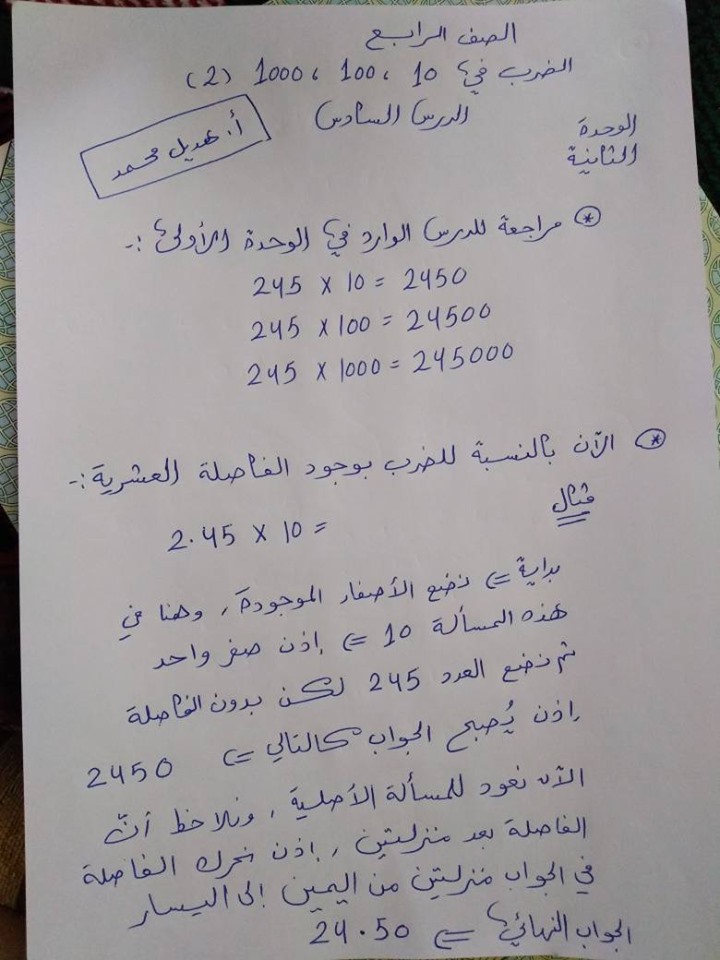 الصف الرابع
الضرب في 10 ، 100 ، 1000 (2)
الدرس السادس
أ. هديل محمد
الوحدة
الثانية
* مراجعة للدرس الوارد في الوحدة الأولى :-
245 × 10 = 2450
245 × 100 = 24500
245 × 1000 = 245000
* الآن بالنسبة للضرب بوجود الفاصلة العشرية :-
مثال
2.45 × 10 =
بداية ⇐ نضع الأصفار الموجودة ، وهنا في
هذه المسألة 10 ⇐ إذن صفر واحد
ثم نضع العدد 245 لكن بدون الفاصلة
إذن يُصبح الجواب كالتالي ⇐ 2450
الآن نعود للمسألة الأصلية ، ونلاحظ أنّ
الفاصلة بعد منزلتين ، إذن نحرك الفاصلة
في الجواب منزلتين من اليمين إلى اليسار
الجواب النهائي ⇐ 24.50